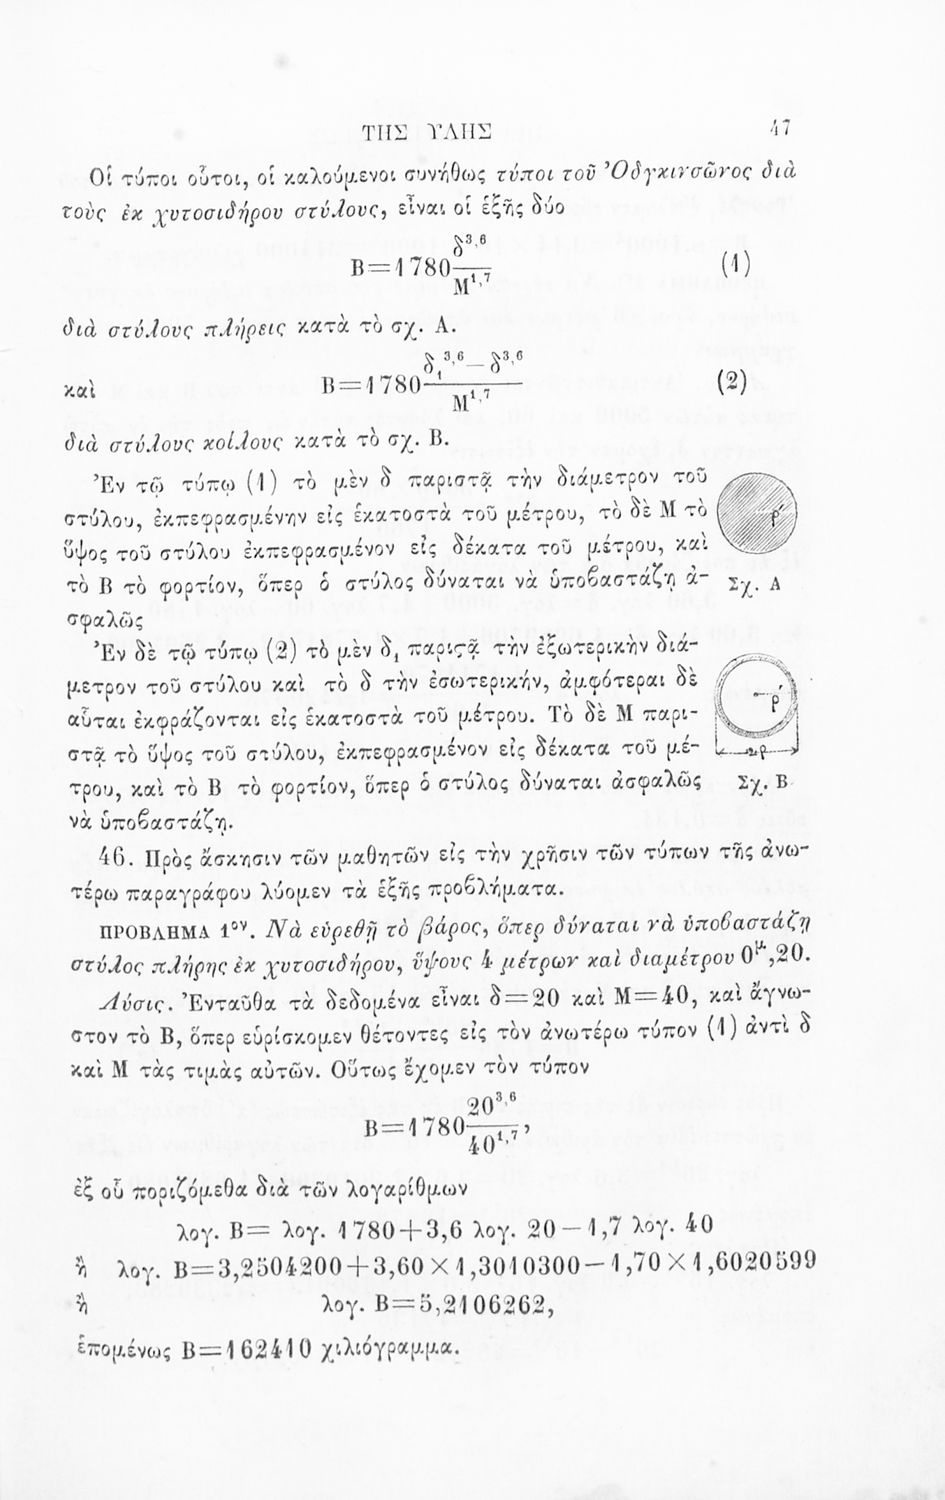 ΤΗΣ ΥΛΗΣ 47
Οἱ τύποι οὗτοι, οἱ καλούμενοι συνήθως τύποι τοῦ Ὀδγκινσῶνος διὰ
τοὺς ἐκ χυτοσιδήρου στύλους, εἶναι οἱ ἑξῆς δύο
Β=1780 δ^3,6 / Μ^1,7 (1)
διὰ στύλους πλήρεις κατὰ τὸ σχ. Α.
καὶ Β=1780 δ₁^3,6 — δ^3,6 / Μ^1,7 (2)
διὰ στύλους κοίλους κατὰ τὸ σχ. Β.
Ἐν τῷ τύπῳ (1) τὸ μὲν δ παριστᾷ τὴν διάμετρον τοῦ
στύλου, ἐκπεφρασμένην εἰς ἑκατοστὰ τοῦ μέτρου, τὸ δὲ Μ τὸ
ὕψος τοῦ στύλου ἐκπεφρασμένον εἰς δέκατα τοῦ μέτρου, καὶ
τὸ Β τὸ φορτίον, ὅπερ ὁ στύλος δύναται νὰ ὑποβαστάζῃ ἀ-
σφαλῶς
ρ΄
Σχ. Α
Ἐν δὲ τῷ τύπῳ (2) τὸ μὲν δ₁ παριςτᾷ τὴν ἐξωτερικὴν διά-
μετρον τοῦ στύλου καὶ τὸ δ τὴν ἐσωτερικήν, ἀμφότεραι δὲ
αὗται ἐκφράζονται εἰς ἑκατοστὰ τοῦ μέτρου. Τὸ δὲ Μ παρι-
στᾷ τὸ ὕψος τοῦ στύλου, ἐκπεφρασμένον εἰς δέκατα τοῦ μέ-
τρου, καὶ τὸ Β τὸ φορτίον, ὅπερ ὁ στύλος δύναται ἀσφαλῶς
νὰ ὑποβαστάζῃ.
ρ΄
2ρ
Σχ. Β
46. Πρὸς ἄσκησιν τῶν μαθητῶν εἰς τὴν χρῆσιν τῶν τύπων τῆς ἀνω-
τέρω παραγράφου λύομεν τὰ ἑξῆς προβλήματα.
ΠΡΟΒΛΗΜΑ 1ον. Νὰ εὑρεθῇ τὸ βάρος, ὅπερ δύναται νὰ ὑποβαστάζῃ
στύλος πλήρης ἐκ χυτοσιδήρου, ὕψους 4 μέτρων καὶ διαμέτρου 0^μ,20.
Λύσις. Ἐνταῦθα τὰ δεδομένα εἶναι δ=20 καὶ Μ=40, καὶ ἄγνω-
στον τὸ Β, ὅπερ εὑρίσκομεν θέτοντες εἰς τὸν ἀνωτέρω τύπον (1) ἀντὶ δ
καὶ Μ τὰς τιμὰς αὐτῶν. Οὕτως ἔχομεν τὸν τύπον
Β=1780 20^3,6 / 40^1,7 ,
ἐξ οὗ ποριζόμεθα διὰ τῶν λογαρίθμων
λογ. Β= λογ. 1780+3,6 λογ. 20—1,7 λογ. 40
ἢ λογ. Β=3,2504200+3,60×1,3010300—1,70×1,6020599
ἢ λογ. Β=5,2106262,
ἑπομένως Β=162410 χιλιόγραμμα.